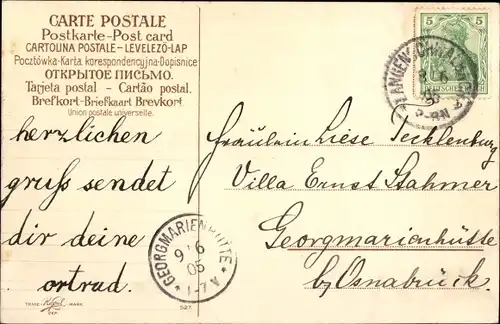 CARTE POSTALE
Postkarte-Post card
CARTOLINA POSTALE - LEVELEZŐ-LAP
Pocztówka-Karta korespondencyjna-Dopisnice
ОТКРЫТОЕ ПИСЬМО.
Tarjeta postal - Cartão postal.
Brefkort-Briefkaart Brevkort.
Union postale universelle.
herzlichen
gruß sendet
dir deine
ortrud.
TRADE MARK
DEP.
527.
5 5
DEUTSCHES REICH
LANGENSCHWALBACH
9 6
05
5-6N
Fräulein Liese Tecklenburg
Villa Ernst Stahmer
Georgmarienhütte
b/ Osnabrück.
GEORGMARIENHÜTTE
9 6
05
1-7V